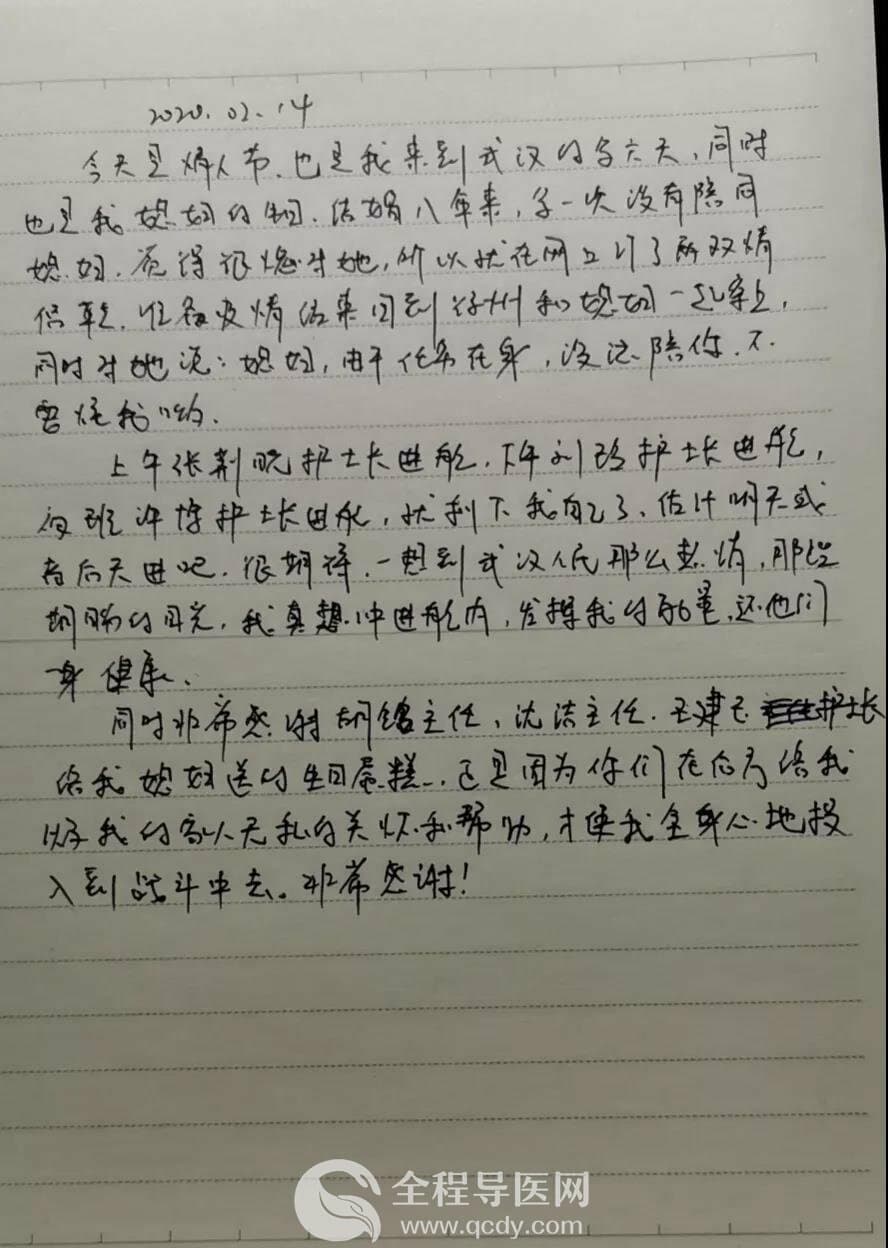 2020.02.14
今天是情人节.也是我来到武汉的第六天,同时
也是我媳妇的生日.结婚八年来,第一次没有陪同
媳妇.觉得很愧对她,所以就在网上订了两双情
侣鞋.准备疫情结束回到徐州和媳妇一起穿上,
同时对她说:媳妇,由于任务在身,没法陪你.不
要怪我哟.
上午张荆晓护士长进舱.下午刘璐护士长进舱,
夜班许博护士长进舱,就剩下我自己了.估计明天或
者后天进吧.很期待.一想到武汉人民那么热情,那些
期盼的目光,我真想冲进舱内,发挥我的能量,还他们
身健康.
同时非常感谢胡主任、沈洁主任.王津王护士长
给我媳妇送的生日蛋糕.正是因为你们在后方给我
以及我的家人无私的关怀和帮助,才使我全身心地投
入到战斗中去。非常感谢!
全程导医网
www.qcdy.com